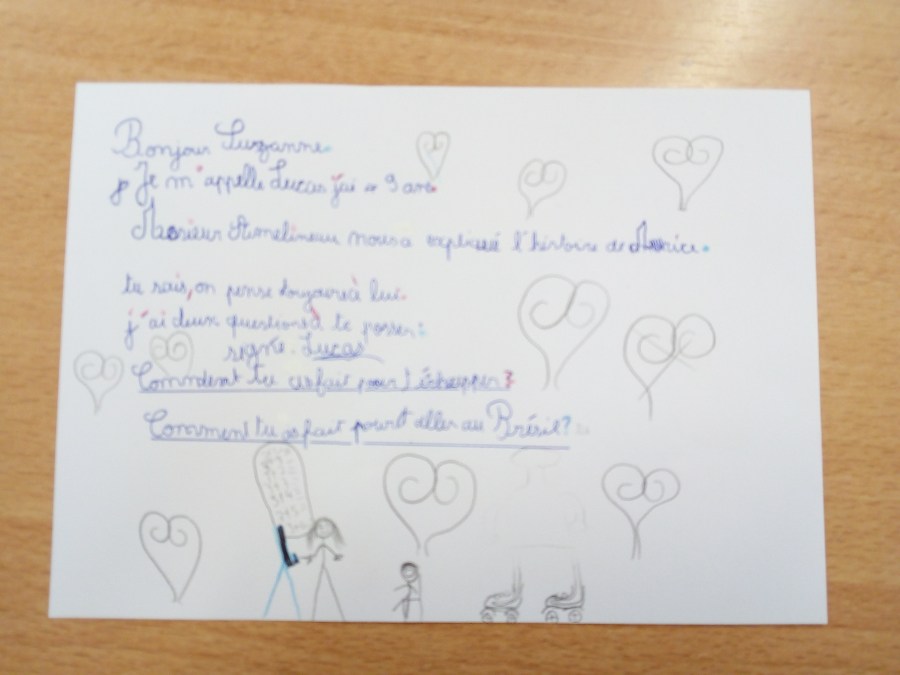 Bonjour Suzanne.
Je m'appelle Lucas j'ai 9 ans.
Monsieur Amelineau nous a expliqué l'histoire de
tu sais, on pense toujours à lui.
j'ai deux questions à te poser:
signé. Lucas
Comment tu as fait pour t'échapper?
Comment tu as fait pour aller au Brésil?